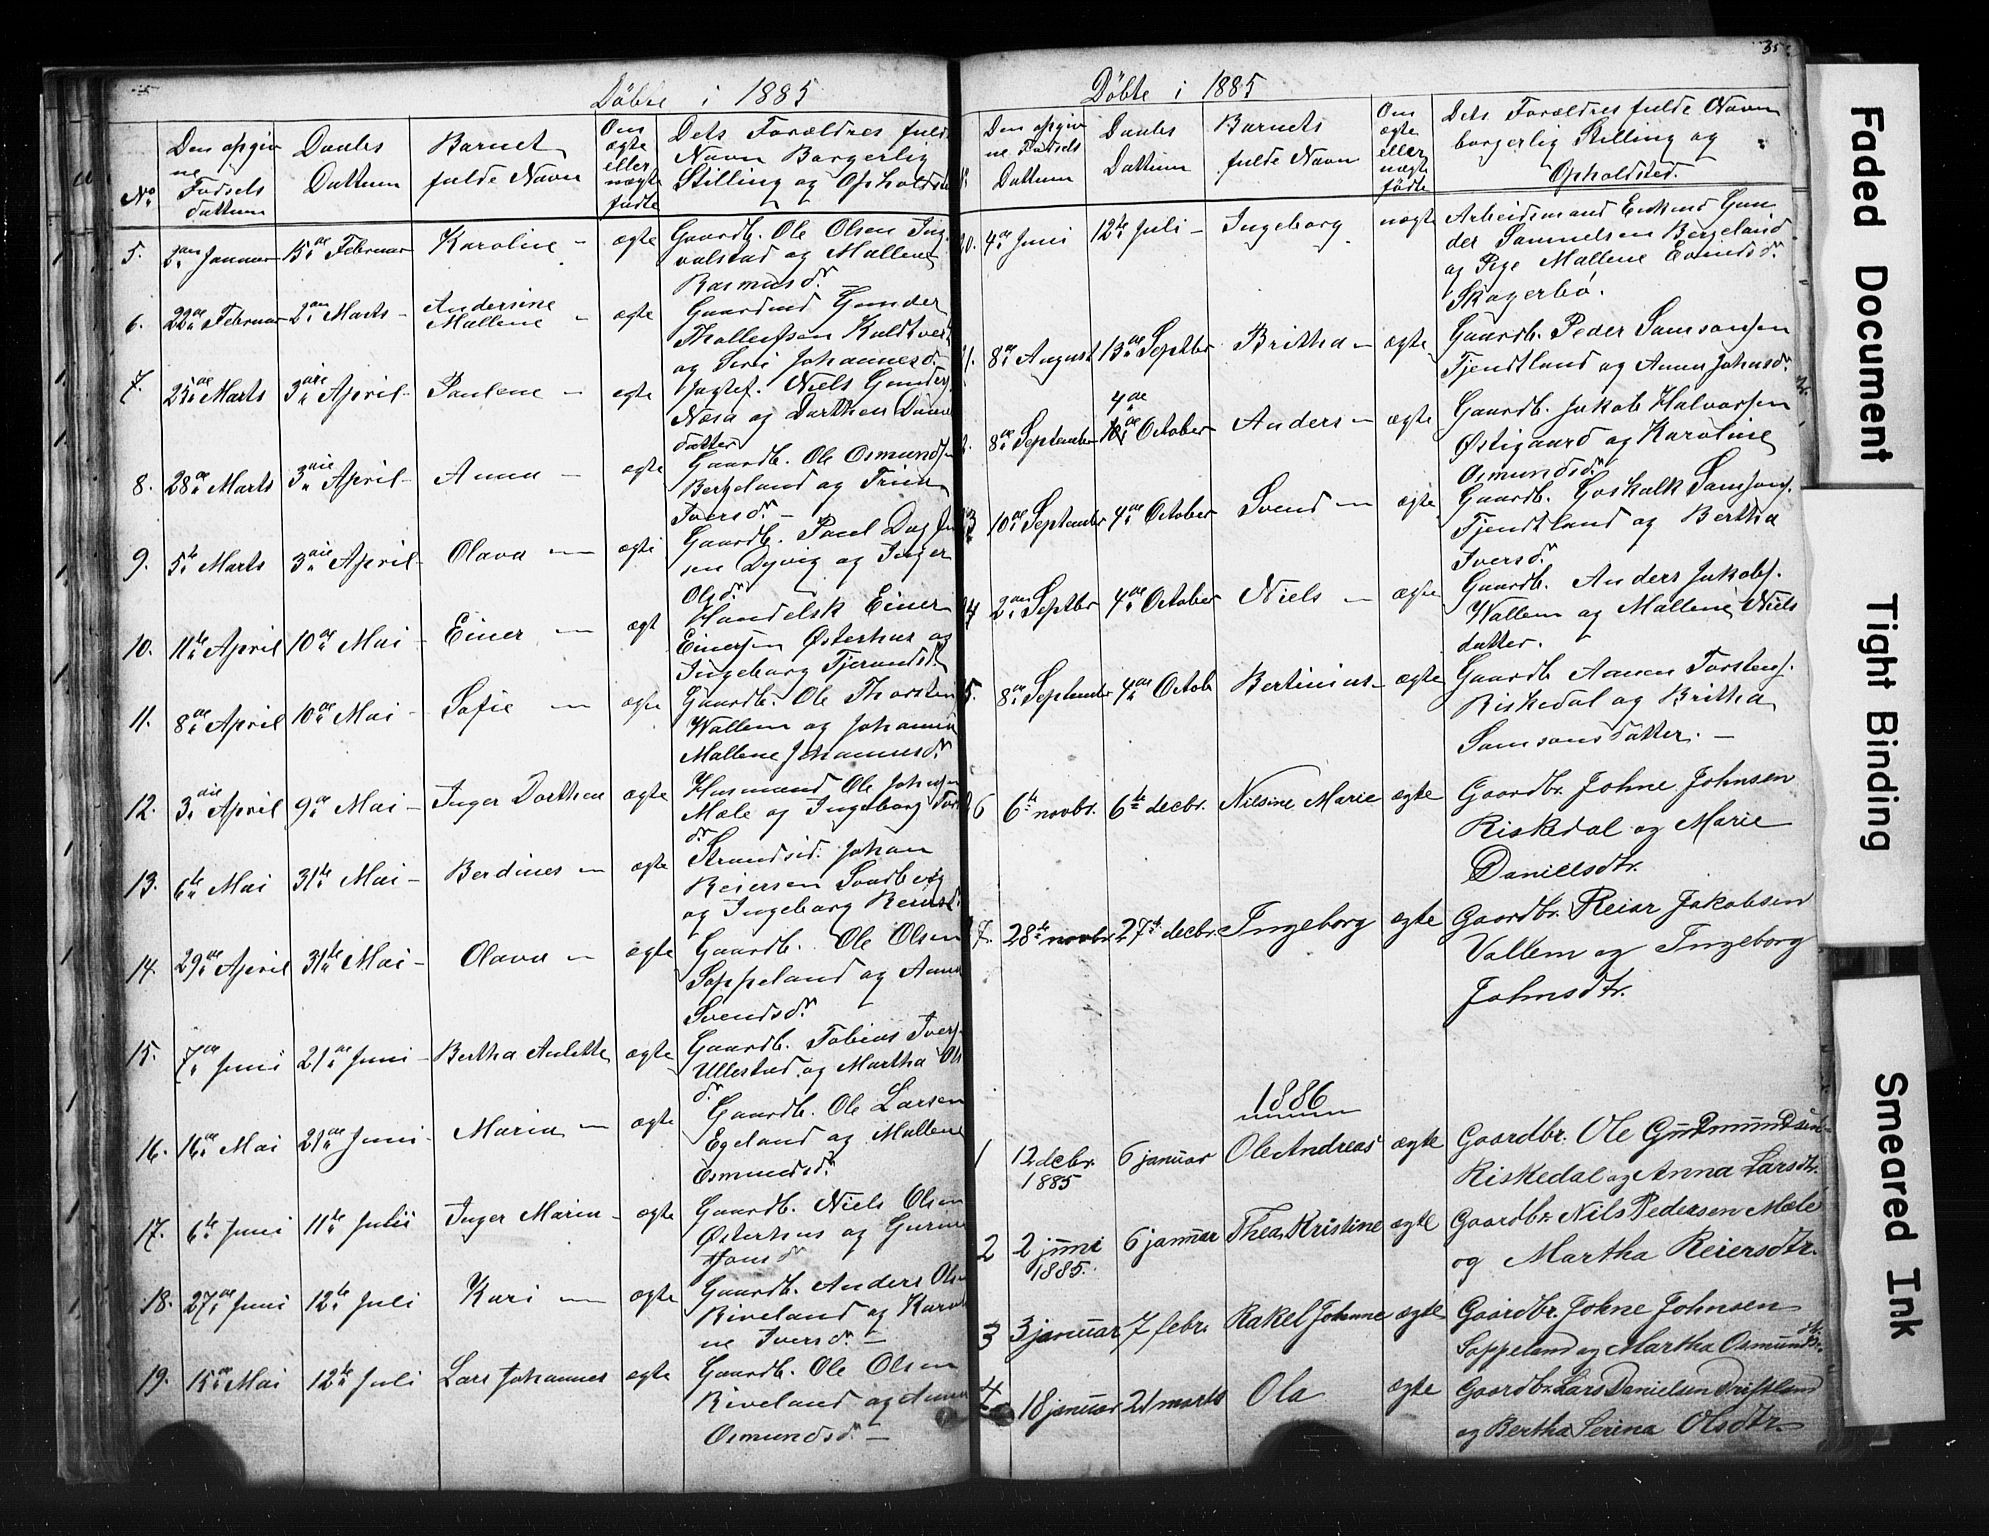 Döbte i 1885
No
Den opgivne Fødsels dattum
Daabs Dattum
Barnet fulde Navn
Om ægte eller uægte fødte
Dets Forældres fulde
Navn Borgerlig
Stilling og Opholdste
5. 2den Januar 15de Februar Karoline – ægte Gaardb. Ole Olsen
og Mallene
Rasmusdr
6. 22de Februar 2den Marts – Andersine Mallene – ægte Gaardmd Gunder
Thollefsen Kaldtvedt
og Siri Johannesdr
7. 25de Marts 3die April – Paulene – ægte Niels Gunders
Nesa og Dorthea
datter
8. 28de Marts 3die April – Anna – ægte Gaardb. Ole Osmunds
Bergeland og
Iversdr. –
9. 5te Marts 3die April – Olava – ægte Gaardb. Paul
Dyvig og Inger
Olsdr
10. 11te April 10de Mai – Einer – ægt Handelsk Einer
Einersen Østerhus og
Ingeborg Tjerandsdr
11. 8de April 10de Mai – Sofie – ægte Gaardb. Ole Thorsten
Wallem og Johanna
Mallene Johannesdr
12. 3die April 9de Mai – Inger Dorthea ægte Husmand Ole Johnsen
Mæle og Ingeborg
dr.
13. 6te Mai 31te Mai – Berdines – ægte Strandsid. Johan
Reiersen Sandberg
og Ingeborg
14. 29de April 31te Mai – Olava – ægte Gaardb. Ole Olsen
Soppeland og Anna
Svendsdr
15. 7de Juni 21de Juni – Bertha Aulette ægte Gaardb. Tobias Ivers
Ullestad og Martha Ols
dr.
16. 16de Mai 21de Juni – Maria – ægte Gaardb. Ole Larsen
Egeland og Mallene
Osmundsdr
17. 6te Juni 11te Juli Inger Maria – ægte Gaardb. Niels Olsen
Østerhus og Gurine
18. 27de Juni 12te Juli Kari – ægte Gaardb. Anders Ols
Riveland og Karo
ne Iversdr. –
19. 15de Mai 12te Juli Lars Johannes ægte Gaardb. Ole Olsen
Riveland og Anna
Osmundsdr. –
35
Döbte i 1885
Den opgivne Fødsels Dattum
Daabs Dattum
Barnets fulde Navn
Om ægte eller uægte fødte
Dets Forældres fulde Navn
borgerlig Stilling og
Opholdsted.
20. 4de Juni 12te Juli – Ingeborg uægte Arbeidsmand Enkmd Gun
der Samuelsen Bergeland
og Pige Mallene Evindsdr
Skogerbø.
8de August 13de Septbr Britha – ægte Gaardb. Peder Samsonsen
Tjendtland og Anna Johnsdr
4de
8de September October Anders – ægte Gaardb. Jakob Halvorsen
Østigaard og Karoline
Osmundsdr
10de September 4de October Svend – ægte Gaardb. Goskalk Samsons.
Tjendtland og Bertha
Iversdr
2den Septbr 4de October Niels – ægte Gaardb. Anders Jakobs.
Wallem og Mallene Niels
datter.
5. 8de September 4de Octob Bertinius – ægte Gaardb Aanen Torstens.
Riskedal og Britha
Samsonsdatter. –
6 6te novbr. 6te decbr. Nilsine Marie ægte Gaardbr. Johne Johnsen
Riskedal og Marie
Danielsdtr.
7. 28te novbr. 27de decbr. Ingeborg ægte Gaardbr. Reiar Jakobsen
Vallem og Ingeborg
Johnsdtr.
1886
1 12 decbr. 1885 6 januar Ole Andreas ægte Gaardbr. Ole Gudmundsen
Riskedal og Anna Larsdtr.
2 2 juni 1885. 6 januar Thea Kristine ægte Gaardbr. Nils Pedersen Mæle
og Martha Reiersdtr.
3 3 januar 7 febr. Rakel Johanne ægte Gaardbr. Johne Johnsen
Soppeland og Martha Osmundsdtr.
4 18 januar 21 marts Ola ægte Gaardbr. Lars Danielsen Driftland
og Bertha Serina Olsdtr.
Faded Document
Tight Binding
Smeared Ink